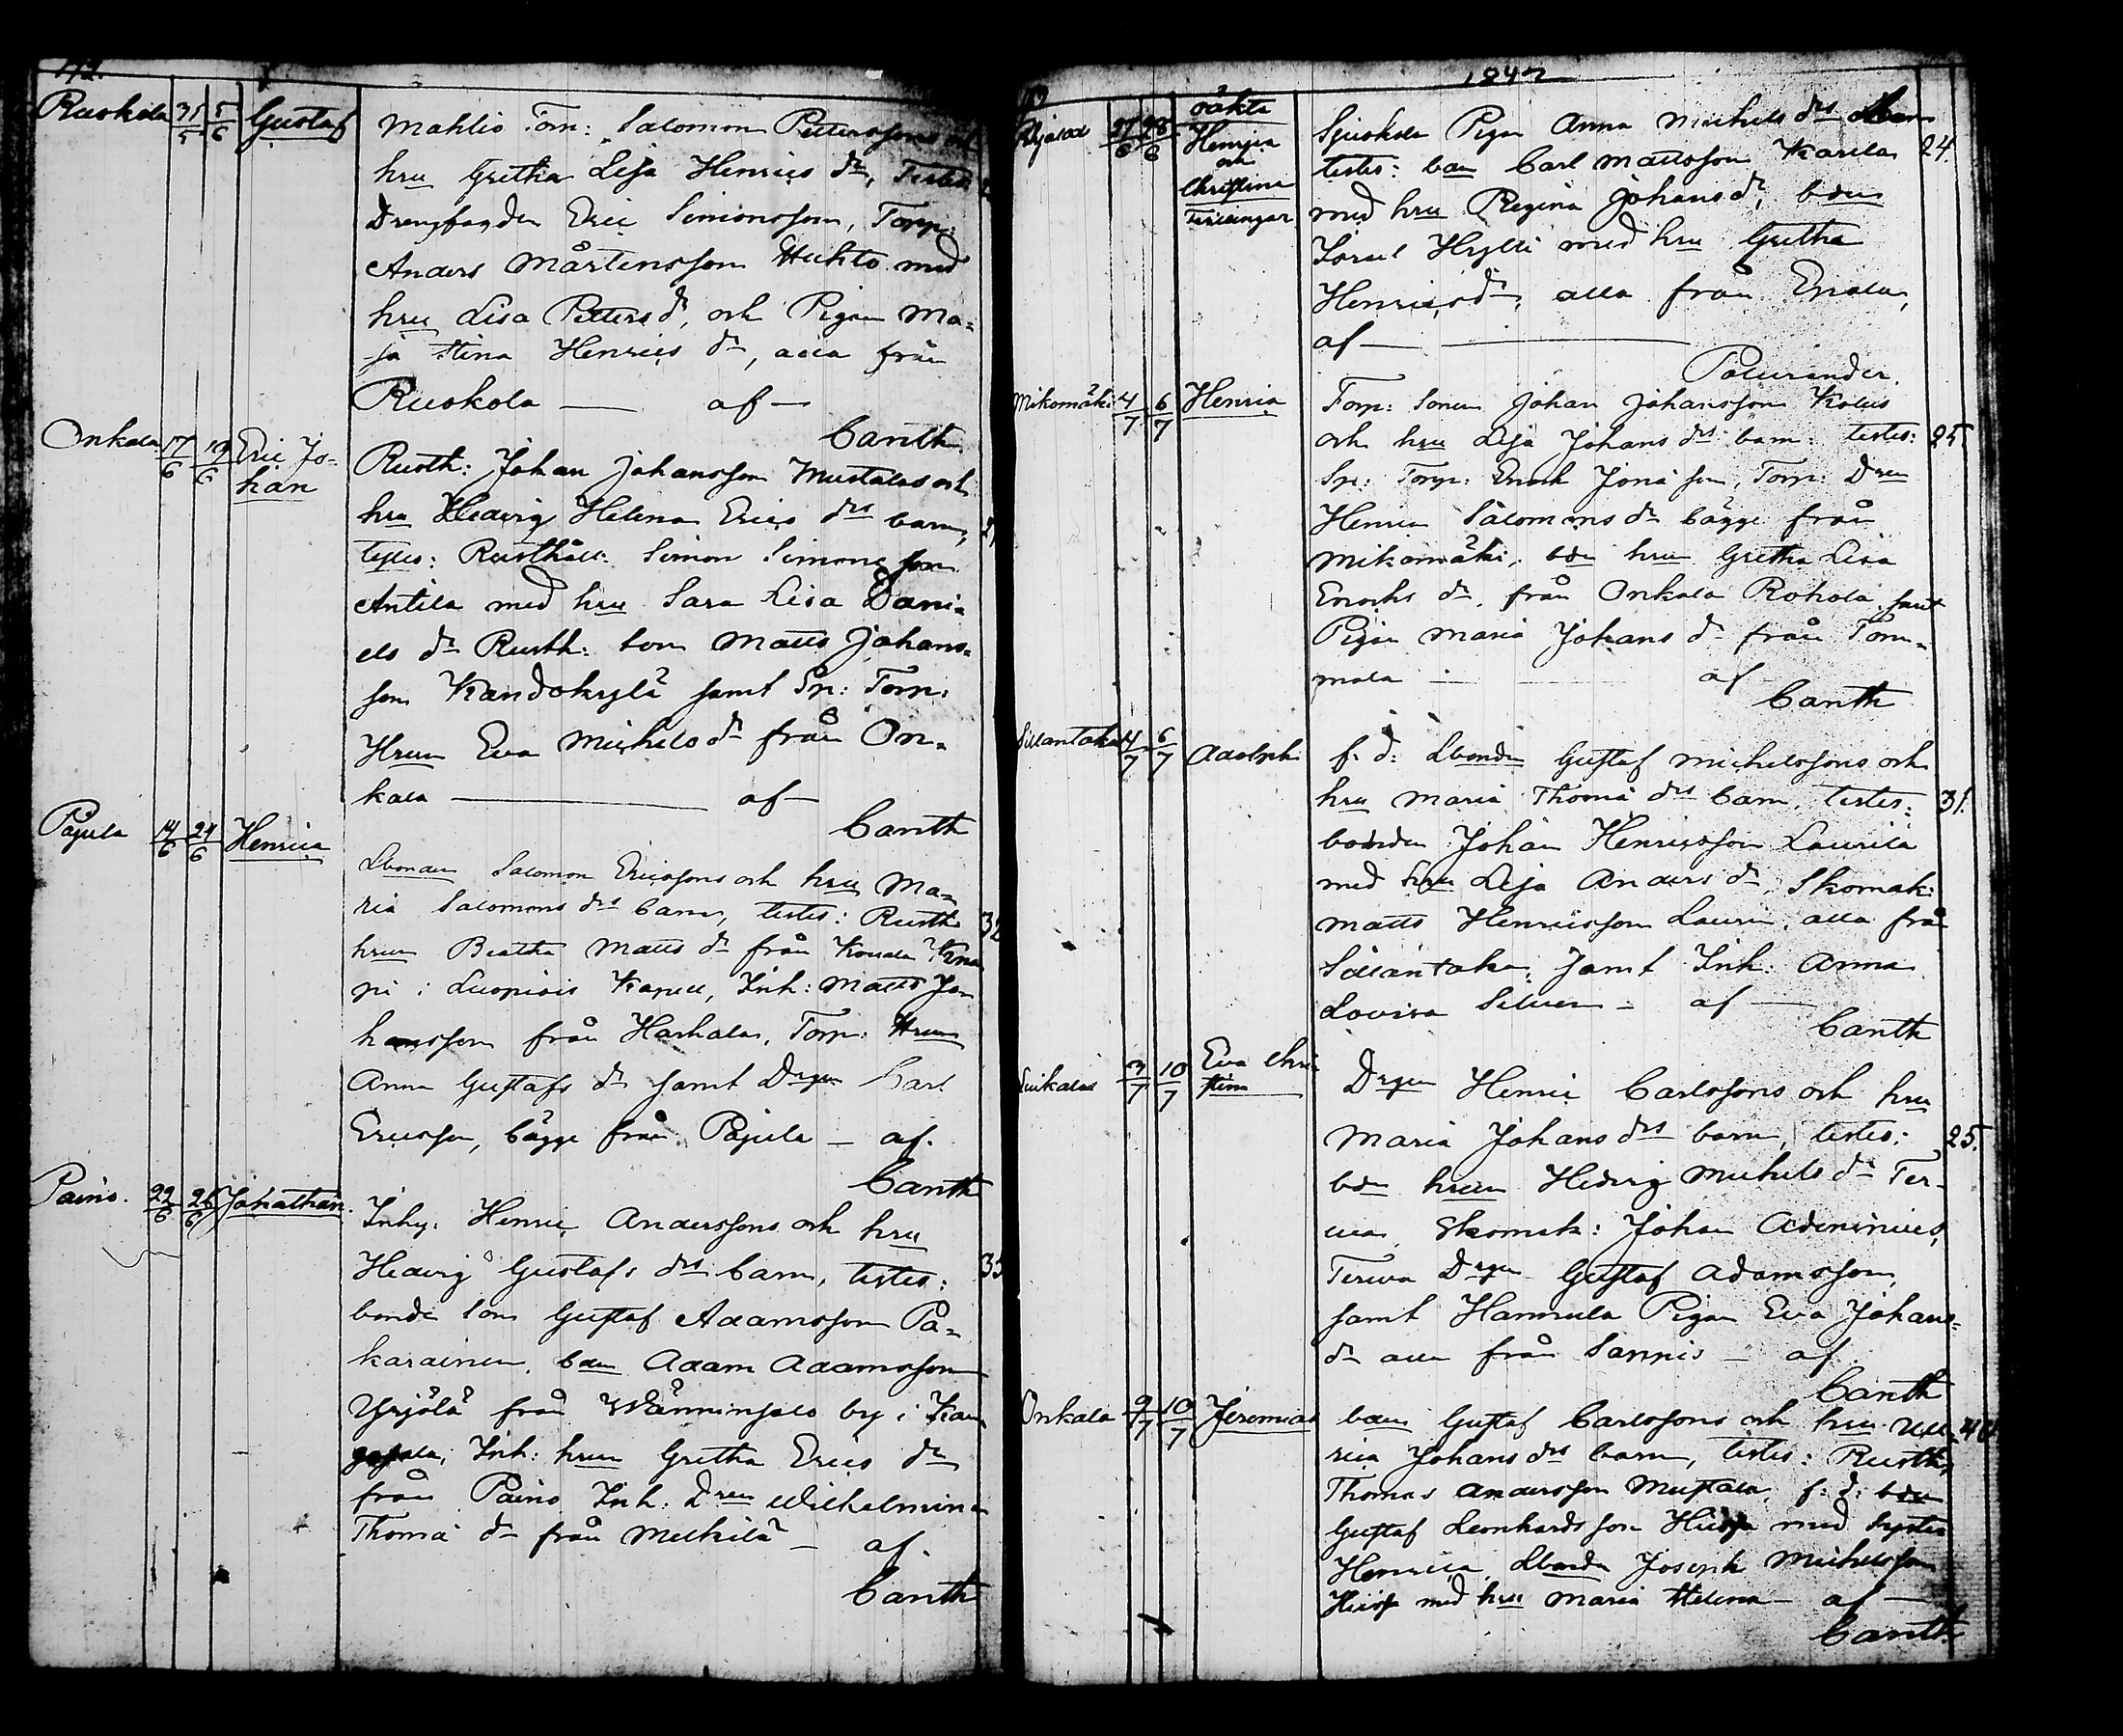 172.
Ruokola 31/5 5/6 Gustaf
Mahlis Torp: Salomon Petterssons och
hru Gretha Lisa Henrics dr, Testes
Drengfogden Eric Simonsson, Torp:
Anders Mårtensson Huhto med
hru Lisa Petters dr, och Pigan Ma-
ja Stina Henrics dr, alla från
Ruokola — af —
Canth
Onkala 17/6 19/6 Eric Jo-
han
Rusth: Johan Johansson Mustalas och
hru Hedvig Helena Erics drs barn,
testes: Rusthåll: Simon Simonsson
Antila med hru Sara Lisa Dani-
els dr Rusth: son Matts Johans-
son Kandokylä samt Sp: Torp:
Hrun Eva Michels dr från On-
kala — af —
Canth
Pajula 14/6 24/6 Henrica
Lbonden Salomon Ericssons och hru Ma-
ria Salomons drs barn, testes: Rusth 32
hrun Beatha Matts dr från Kouvala
pi i Luopiois Kapell, Inh: Matts Jo-
hansson från Harhala, Torp: Hrun
Anna Gustafs dr samt Drgen Carl
Ericsson, bägge från Pajula — af.
Canth
Paino. 22/6 26/6 Johathan.
Inhy: Henric Anderssons och hru
Hedvig Gustafs drs barn, testes: 35
bonde son Gustaf Adamsson Pa-
karainen, bdn Adam Adamsson
Yrjölä från Wänninsalo by i Kan
gasala, Inh: hrun Gretha Erics dr
från Paino Inh: Dren Wilhelmina
Thomä dr från Meckilä — af.
Canth
1847
Pohjalad 27/6 28/6 oäkta
Henrica
och
Christina
Tvillingar
Spiskola Pigan Anna Michels drs Barn 24.
testes: bdn Carl Mattsson Karila
med hru Regina Johans dr, bdn
Israel Hylli med hru Gretha
Henrics dr, alla från Erala,
af —
Palmrander.
Mikomäki 4/7 6/7 Henric
Torp: Sonen Johan Johansson Kolus
och hru Lisa Johans drs barn: testes: 25.
Sp: Torp: Enoch Jonä son, Torp: Dren
Henrica Salomons dr bägge från
Mikomäki, bdn hrun Gretha Lisa
Enochs dr, från Onkala Rohola samt
Pigan Maria Johans dr från Tom-
mola — af
Canth
Sillantaka 4/7 6/7 Adolph
f. d. Lbonden Gustaf Michelssons och
hru Maria Thomä drs barn, testes: 31.
bonden Johan Henricsson Laurila
med hru Lisa Anders dr, Skomak:
Matts Henricsson Laurin, alla från
Sillantaka, samt Inh: Anna
Lovisa Silven — af —
Canth
3/7 10/7 Eva Chri-
stina
Drgen Henric Carlssons och hru
Maria Johans drs barn, testes: 25.
bdn hrun Hedvig Michels dr Ter-
va, Skomak: Johan Adeninius,
Terwa Drgen Gustaf Adamsson,
samt Hannula Pigan Eva Johans-
dr alla från Sappis — af
Canth
Onkala 9/7 10/7 Jeremias
bdn Gustaf Carlssons och hru Ull- 40
rica Johans drs barn, testes: Rusth:
Thomas Andersson Mustala, f. d. bdn
Gustaf Leonhardsson Hiirsi med syster
Henrica, Lbonden Joseph Michelsson
Hiirsi med hru Maria Helena — af —
Canth